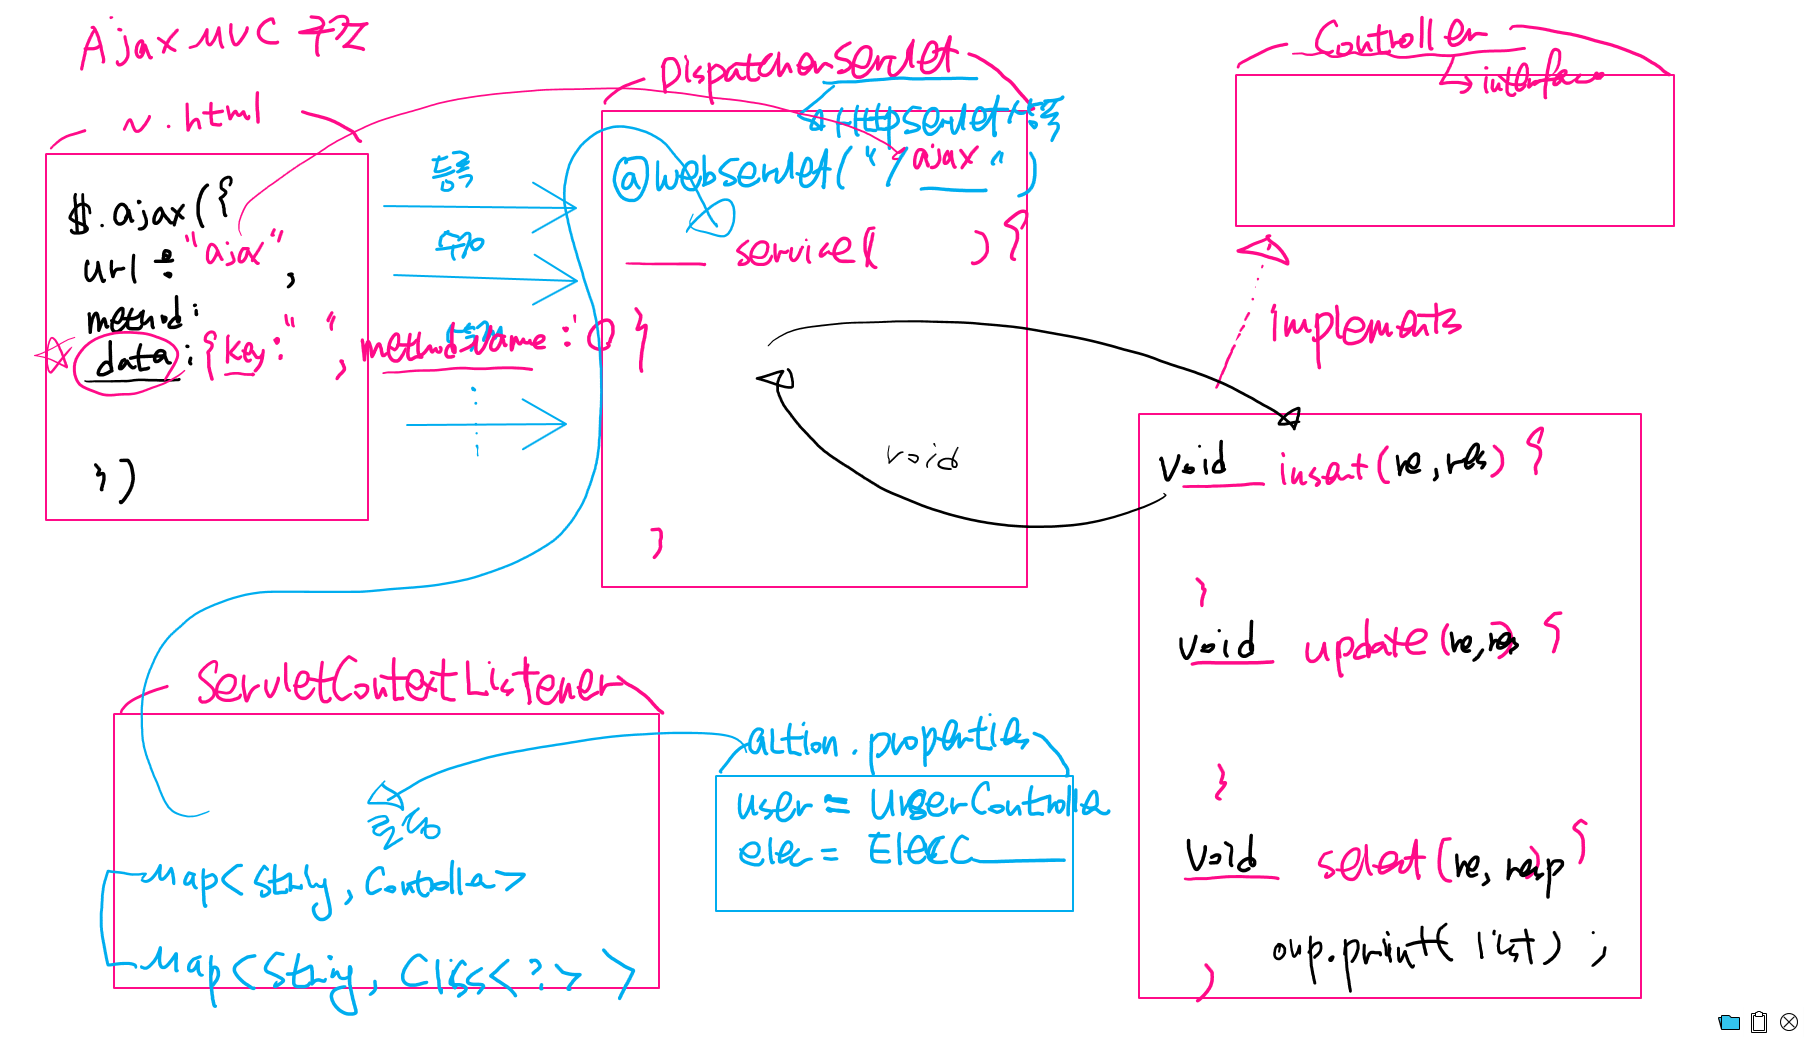 Ajax MVC 구조
~.html
$.ajax({
url : "ajax",
method:
data: {key:" ", methodName:" }
})
등록
수정
DispatcherServlet
HttpServlet 상속
@WebServlet("/ajax")
service( ) {
}
void
Controller
↳ interface
implements
void insert(re, res) {
}
void update(re, res) {
}
void select(re, resp) {
oup.print(list);
}
ServletContextListener
로딩
Map<String, Controlla>
Map<String, Class<?>>
action.properties
user = UserControlla
elec = ElecC